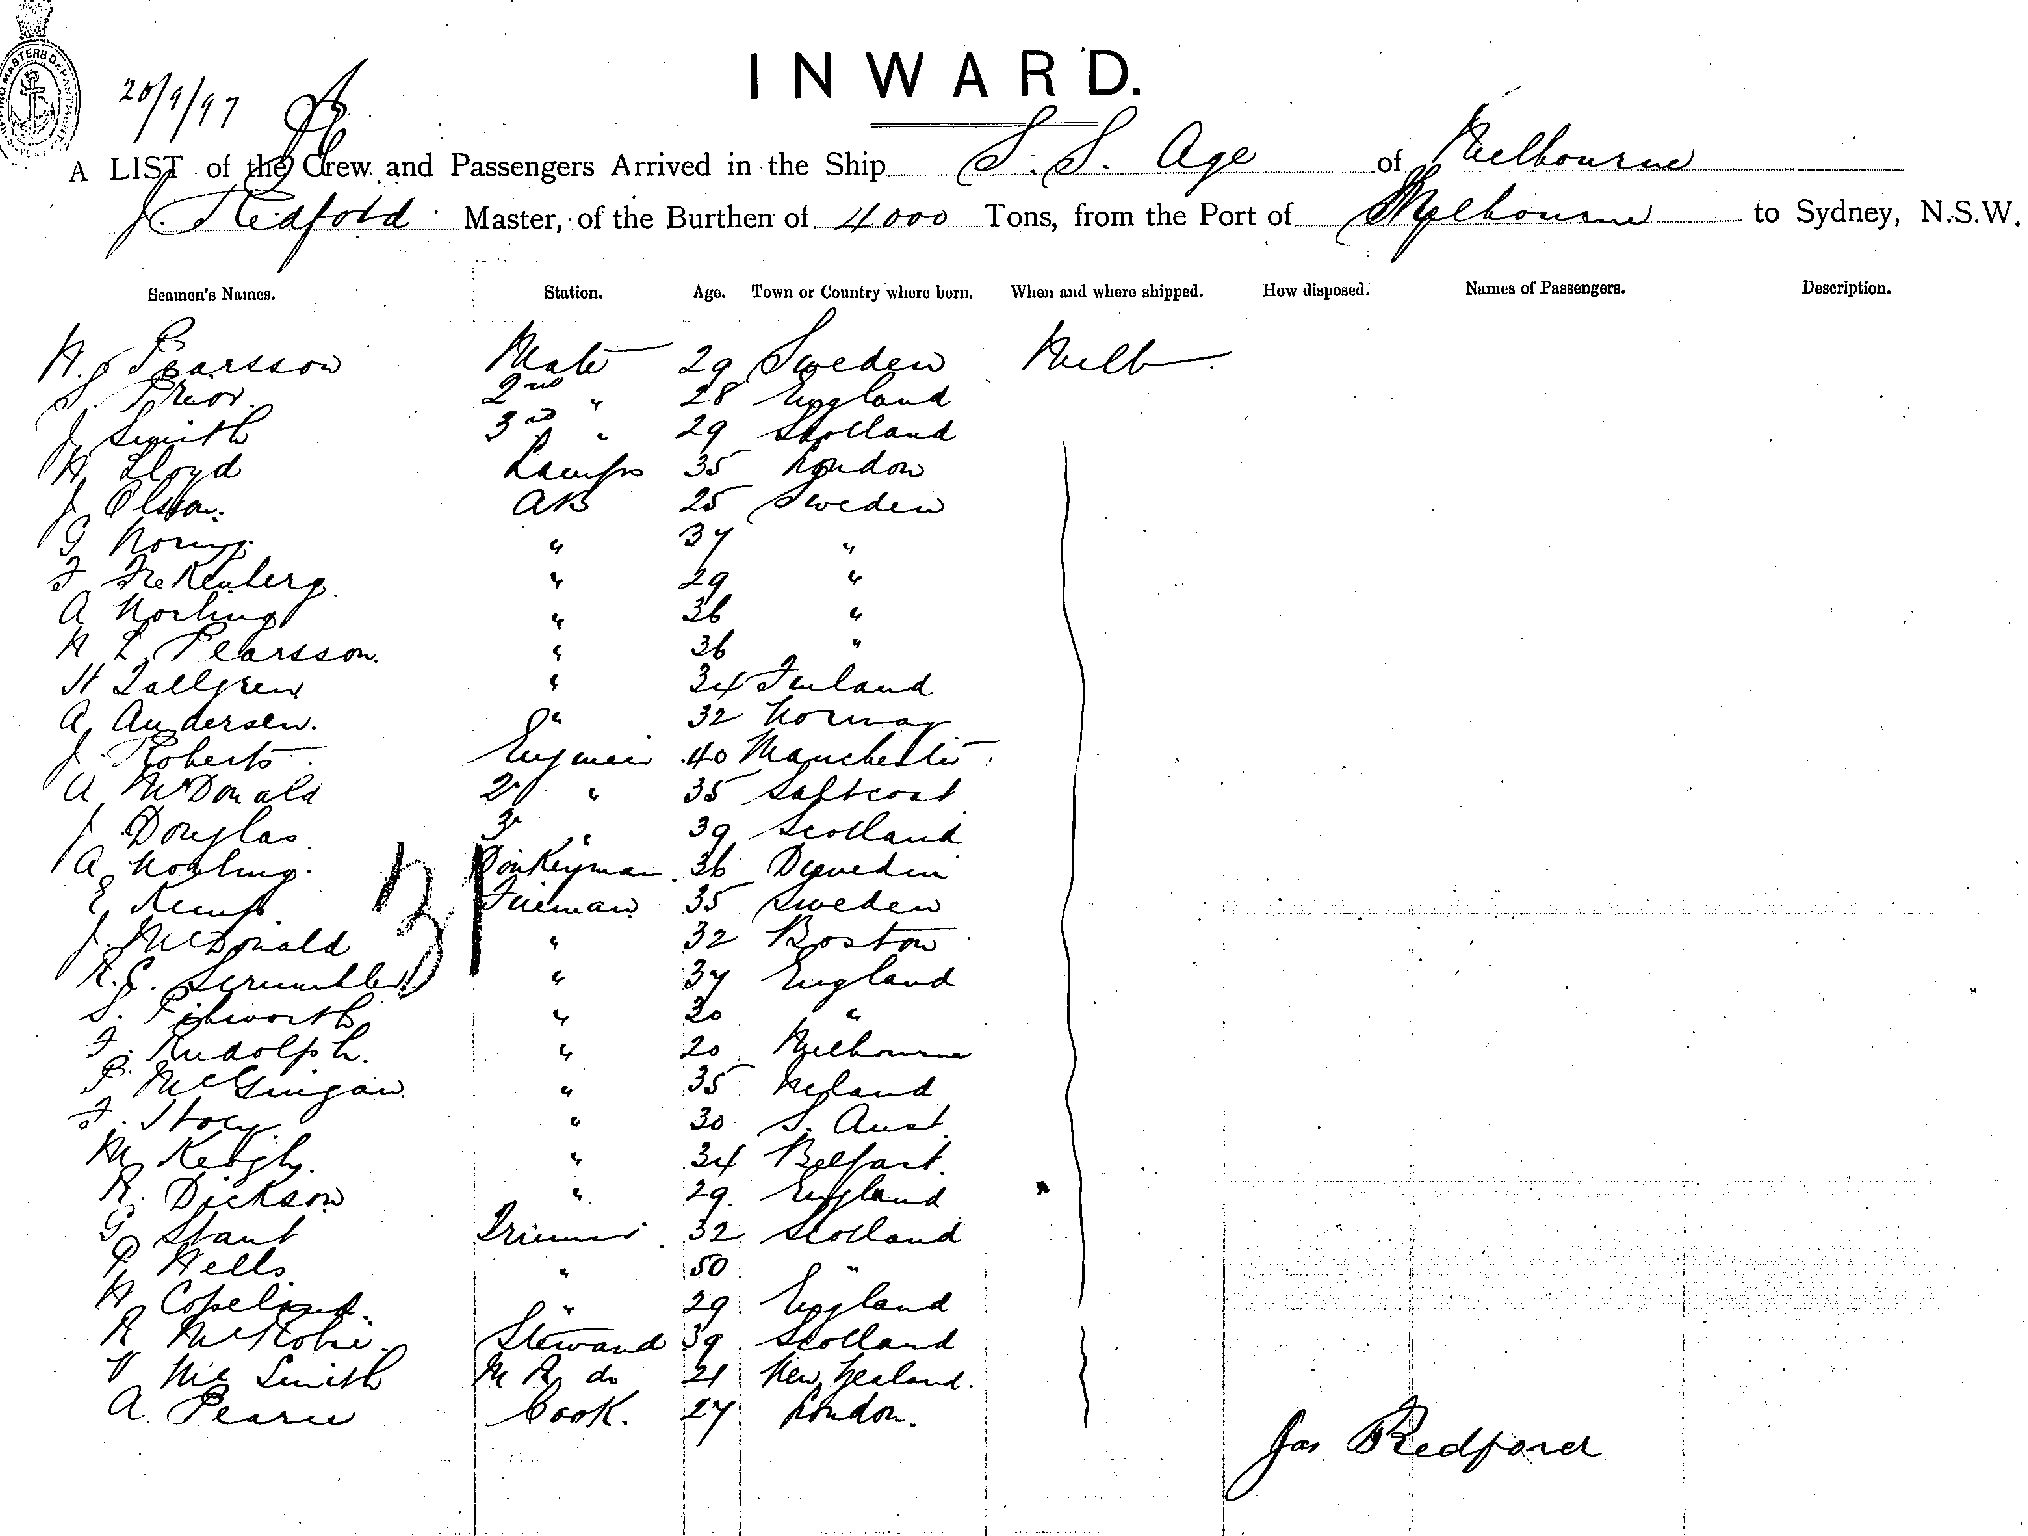 20/9/97
INWARD.
A LIST of the Crew and Passengers Arrived in the Ship S.S. Age of Melbourne
J. Redford Master, of the Burthen of 4000 Tons, from the Port of Melbourne to Sydney, N.S.W.
Seamen's Names. Station. Age. Town or Country where born. When and where shipped. How disposed. Names of Passengers. Description.
Pearsson Mate 29 Sweden Melb
S. Prior 2nd " 28 England
J Smith 3rd " 29 Scotland
H Lloyd Lamps 35 London
J Olson. AB 25 Sweden
G " 37 "
F " 29 "
A Norling " 36 "
N L Pearsson. " 36 "
H " 34 Finland
A Andersen. " 32 Norway
J. Roberts Engineer 40 Manchester
A McDonald 2 " 35 Saltcoat
J. Douglas 3 " 39 Scotland
A Norling. Donkeyman 36
E Kemp. Fireman 35 Sweden
J. McDonald " 32 Boston
" 37 England
S. " 30 "
F. Rudolph. " 20 Melbourne
P. McGuigan " 35 Ireland
F. Story " 30 S. Aust.
M Keogh. " 34 Belfast.
R. Dickson " 29. England
G Trimmer 32 Scotland
P Wells " 50 "
H Copeland. " 29 England
R McRobie. Steward 39 Scotland
V Smith M R do 21 New Zealand.
A. Pearce Cook. 27 London.
Jas Redford